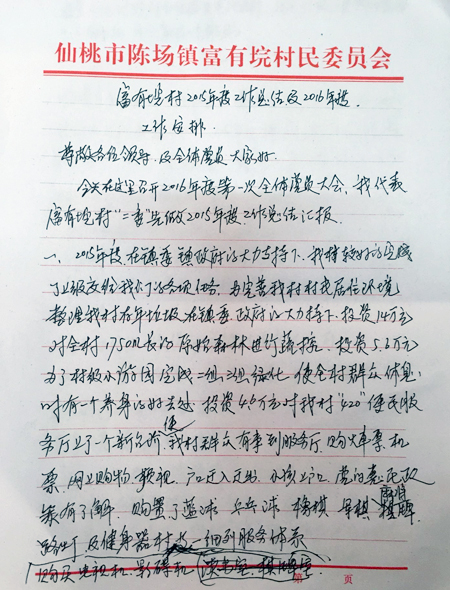 仙桃市陈场镇富有垸村民委员会
富有垸村2015年度工作总结及2016年度
工作安排
尊敬各位领导、及全体党员大家好
今天在这里召开2016年度第一次全体党员大会，我代表
富有垸村"二委"先做2015年度工作总结汇报。
一、2015年度在镇委镇政府的大力支持下，我村较好的完成
了上级交给我们的各项任务，为完善我村村民居住环境
整理我村 在镇委政府的大力持下，投资14万元
对全村1750m长的原始森林进行疏挖，投资5.6万元
为了村级小游园完成二组三组绿化，使全村群众休息
时有一个养身的好去处，投资4.6万元对我村"420"便民服
务厅上了一个新台阶，使我村群众有事到服务厅，购火车票、机
票、网上购物、数视、户口迁入迁出、小孩上户、党的惠民政
策有了了解，购置了蓝球、乒乓球、象棋、军棋、麻将
路灯、及健身器材 一细列服务体系
购买电视机、影碟机（读书室、棋牌室
第 页